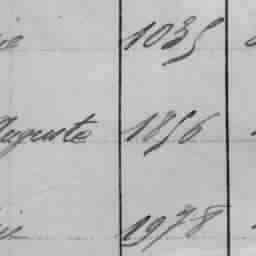 1035
Auguste 1856
1978